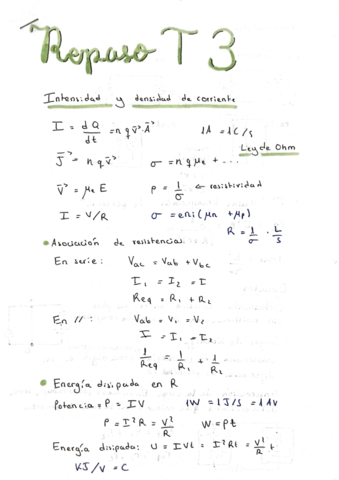 Repaso T3
Intensidad y densidad de corriente
I = dQ/dt = n q v⃗ · A⃗    1A = 1C/s
Ley de Ohm
J⃗ = n q v⃗    σ = n q μe + ...
v⃗ = μe E    ρ = 1/σ ← resistividad
I = V/R    σ = e ni (μn + μp)
R = 1/σ · L/S
• Asociación de resistencias
En serie: Vac = Vab + Vbc
I₁ = I₂ = I
Req = R₁ + R₂
En //: Vab = V₁ = V₂
I = I₁ + I₂
1/Req = 1/R₁ + 1/R₂
• Energía disipada en R
Potencia = P = IV    1W = 1J/s = 1AV
P = I²R = V²/R    W = Pt
Energía disipada: U = IVt = I²Rt = V²/R t
KJ/V = C